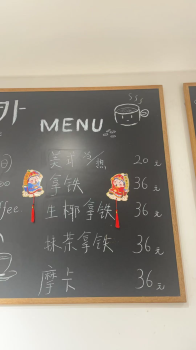 MENU
美式 冷/热 20元
拿铁 36元
生椰拿铁 36元
抹茶拿铁 36元
摩卡 36元